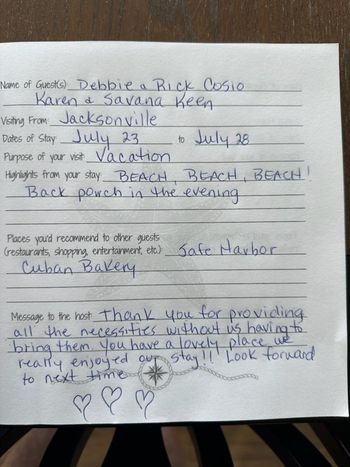 Name of Guest(s) Debbie & Rick Cosio
Karen & Savana Keen
Visiting From Jacksonville
Dates of Stay July 23 to July 28
Purpose of your visit Vacation
Highlights from your stay BEACH, BEACH, BEACH!
Back porch in the evening
Places you'd recommend to other guests
(restaurants, shopping, entertainment, etc.) Safe Harbor
Cuban Bakery
Message to the host Thank you for providing
all the necessities without us having to
bring them. You have a lovely place, we
really enjoyed our stay!! Look forward
to next time